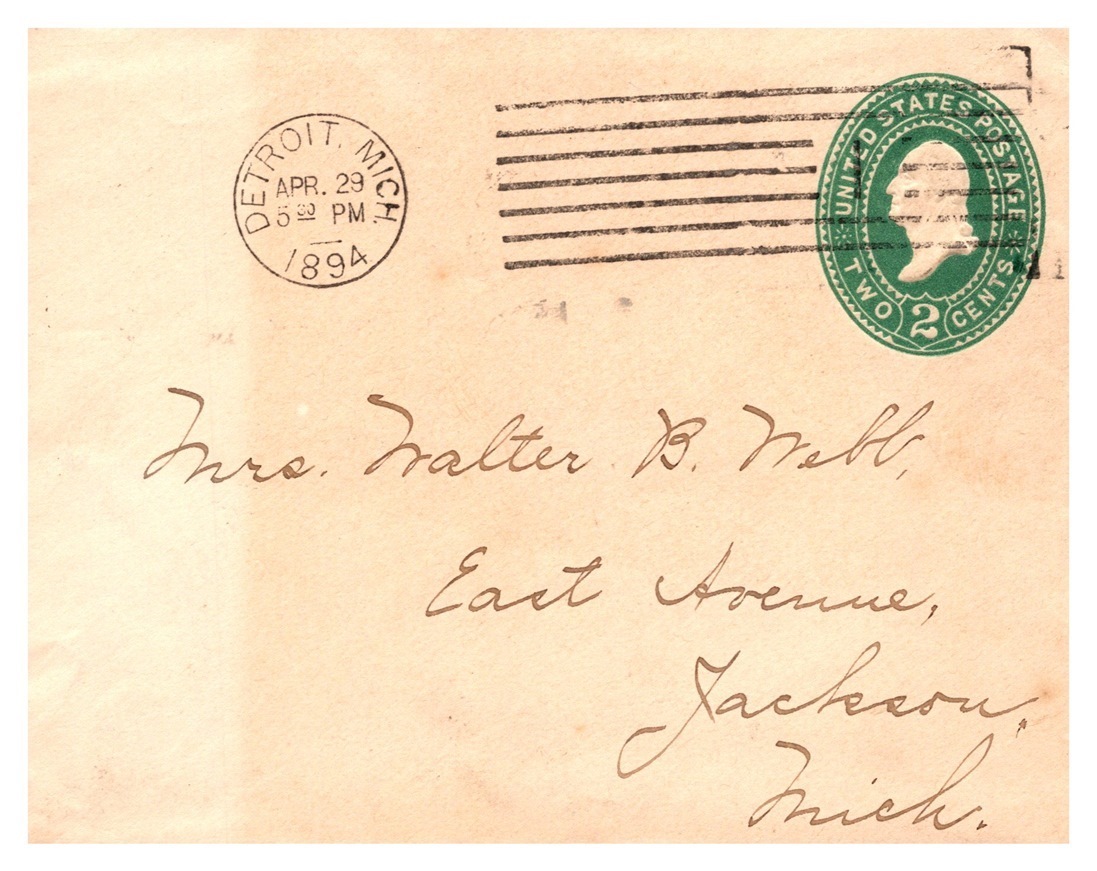 DETROIT, MICH.
APR. 29
5 30 PM
1894
UNITED STATES POSTAGE
TWO 2 CENTS
Mrs. Walter B. Webb,
East Avenue,
Jackson,
Mich.